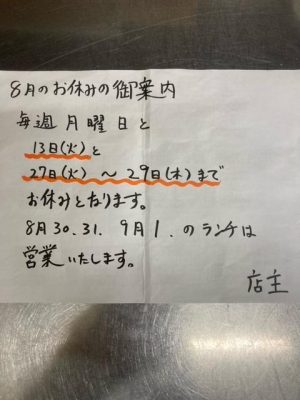 8月のお休みの御案内
毎週月曜日と
13日(火)と
27日(火)〜29日(木)まで
お休みとなります。
8月30.31.9月1.のランチは
営業いたします。
店主